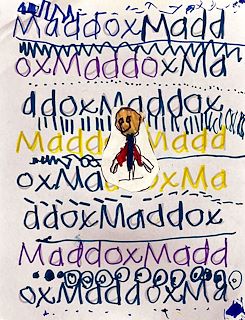 MaddoxMadd
oxMaddoxMa
ddoxMaddox
Madd Madd
oxMa oxMa
ddoxMaddox
MaddoxMadd
oxMaddoxMa